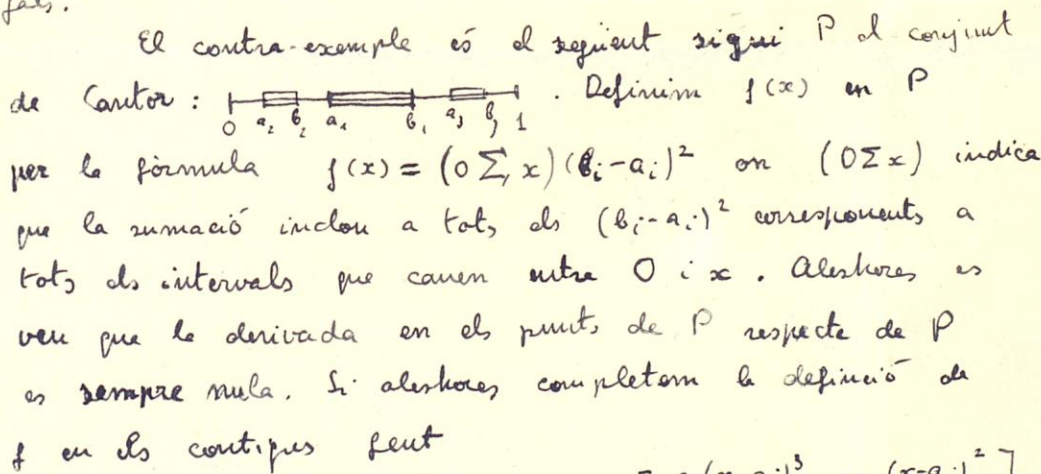 fals.
El contra-exemple és el següent sigui P el conjunt
de Cantor : 0 a₂ b₂ a₁ b₁ a₃ b₃ 1 . Definim f(x) en P
per la fórmula f(x) = (0 Σ x)(b_i - a_i)² on (0 Σ x) indica
que la sumació inclou a tots els (b_i - a_i)² corresponents a
tots els intervals que cauen entre 0 i x . Aleshores es
veu que la derivada en els punts de P respecte de P
es sempre nula. Si aleshores completem la definició de
f en els contigus fent
(x-a_i)³ (x-a_i)² ]